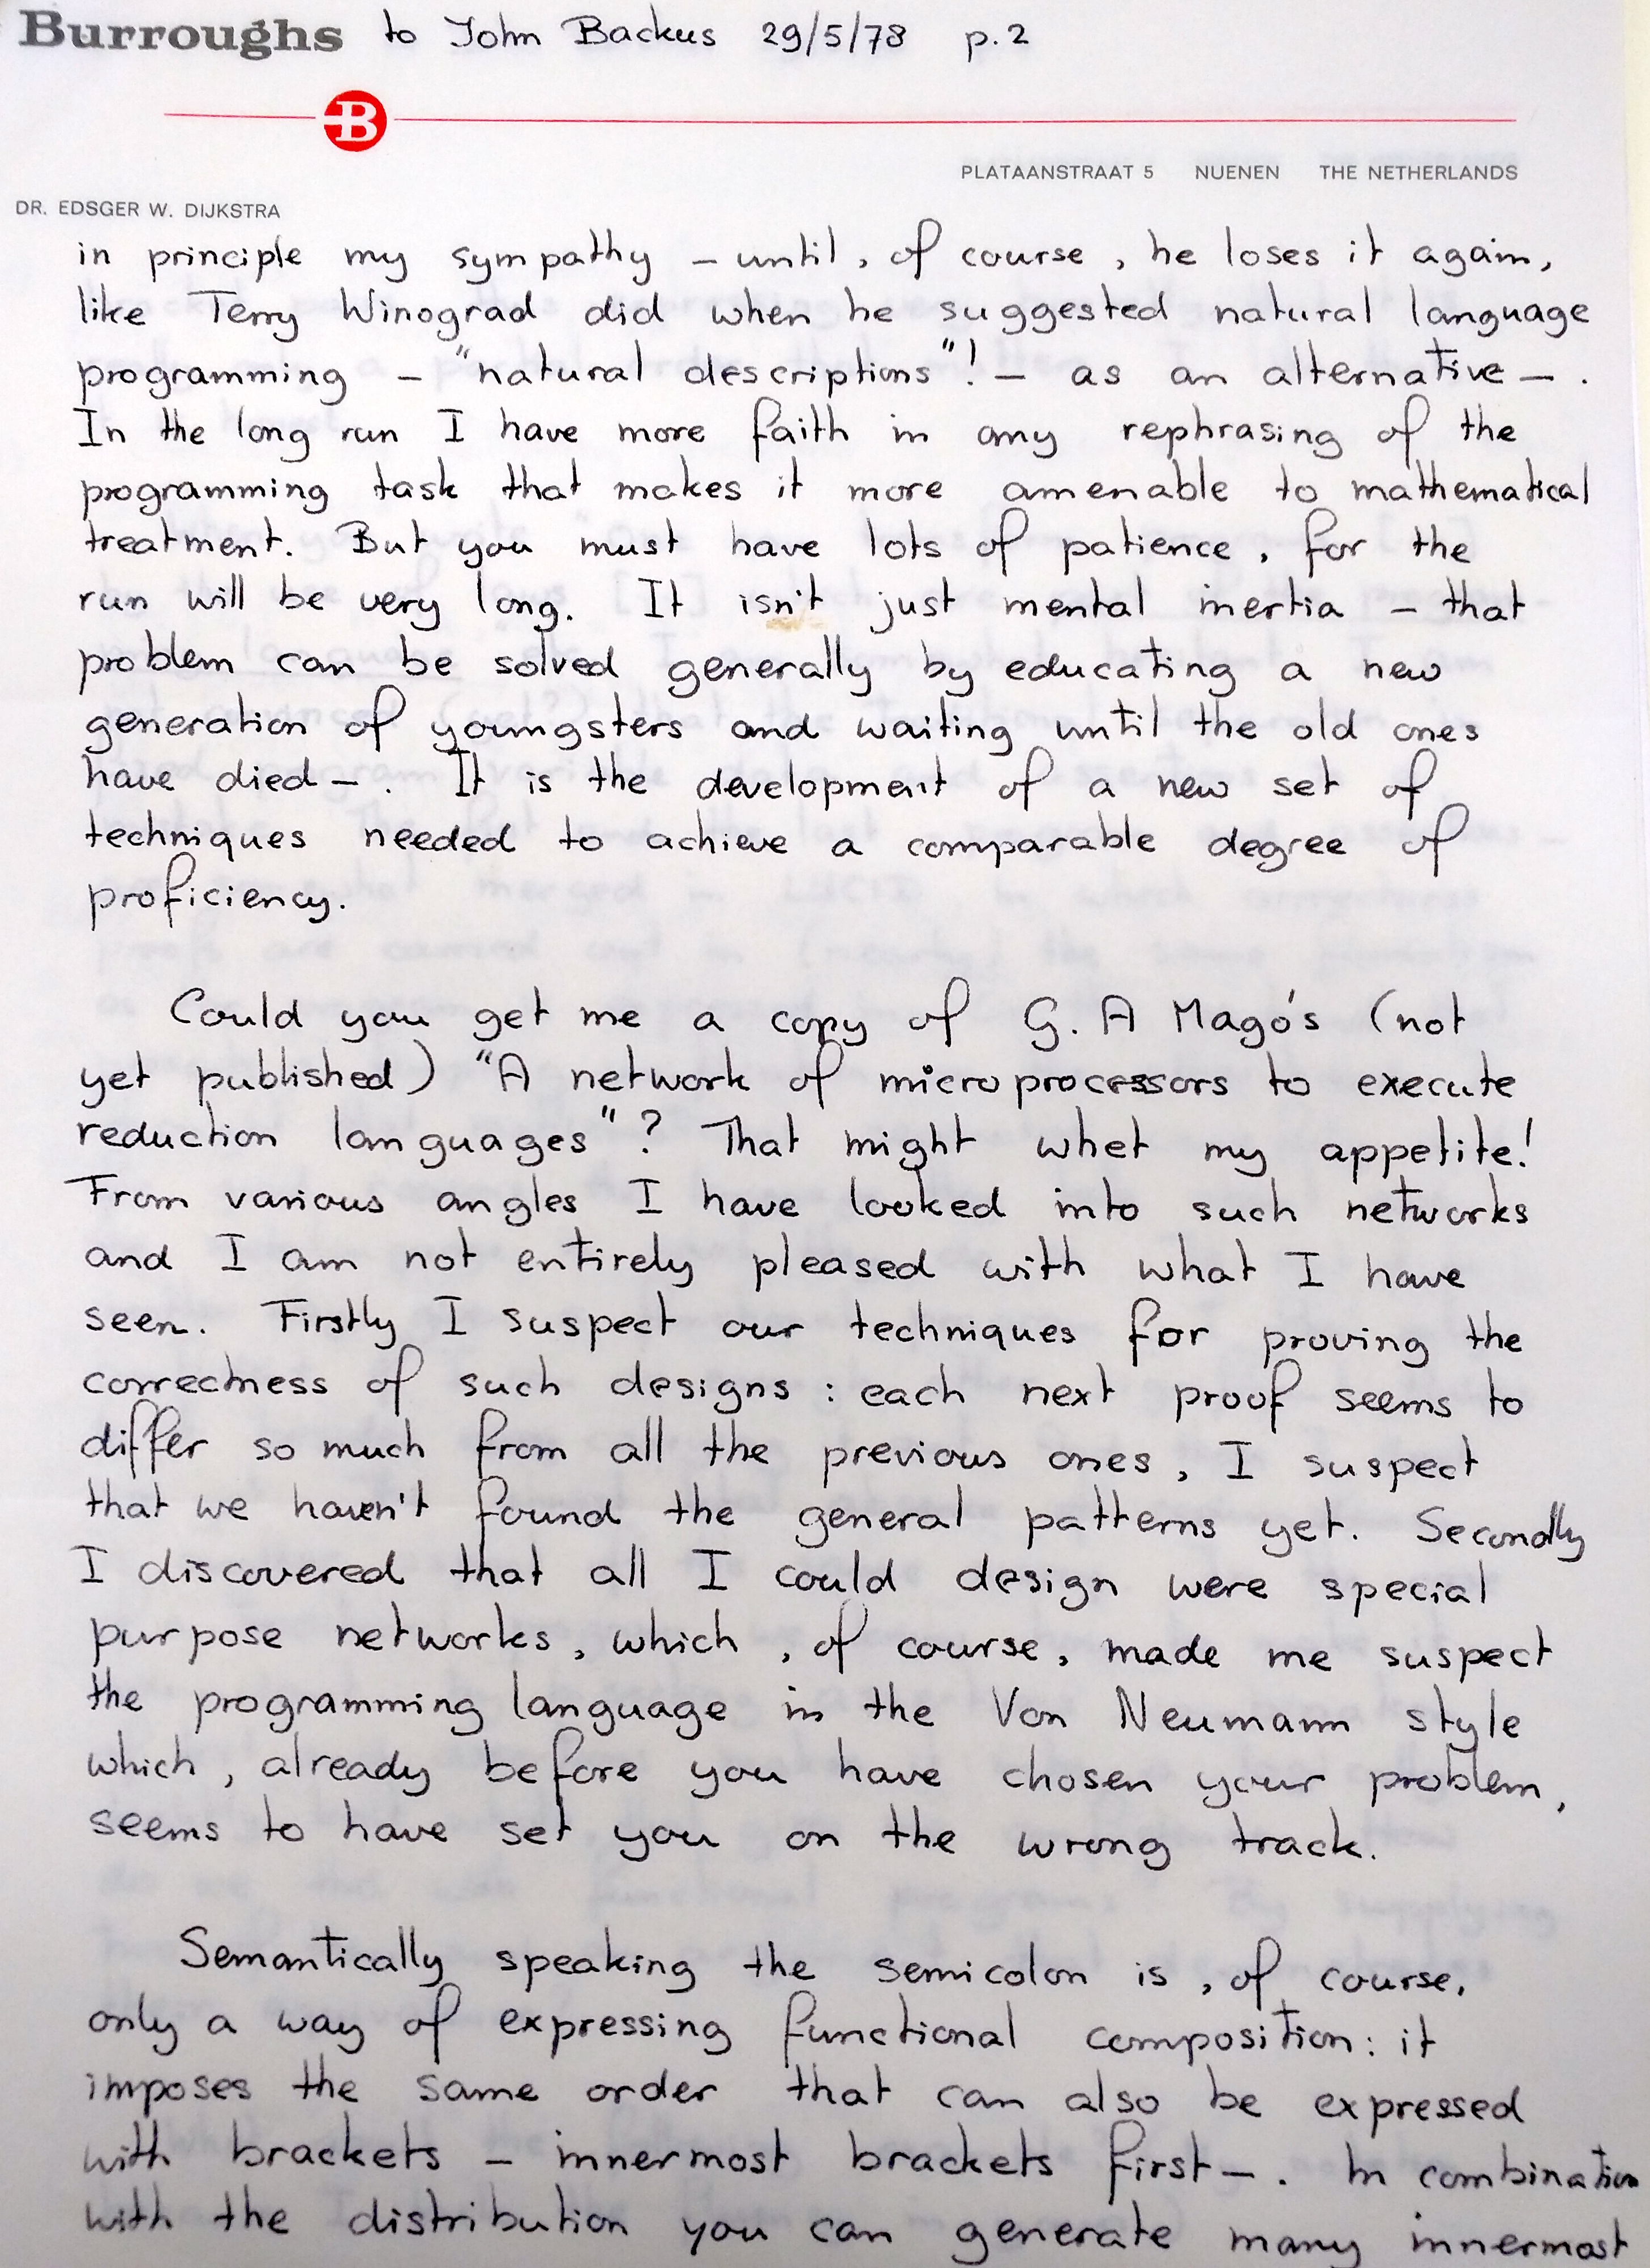 Burroughs to John Backus 29/5/78 p.2
B
PLATAANSTRAAT 5 NUENEN THE NETHERLANDS
DR. EDSGER W. DIJKSTRA
in principle my sympathy – until, of course, he loses it again,
like Terry Winograd did when he suggested natural language
programming – "natural descriptions"! – as an alternative – .
In the long run I have more faith in any rephrasing of the
programming task that makes it more amenable to mathematical
treatment. But you must have lots of patience, for the
run will be very long. It isn't just mental inertia – that
problem can be solved generally by educating a new
generation of youngsters and waiting until the old ones
have died – . It is the development of a new set of
techniques needed to achieve a comparable degree of
proficiency.
Could you get me a copy of G. A Magó's (not
yet published) "A network of microprocessors to execute
reduction languages"? That might whet my appetite!
From various angles I have looked into such networks
and I am not entirely pleased with what I have
seen. Firstly I suspect our techniques for proving the
correctness of such designs: each next proof seems to
differ so much from all the previous ones, I suspect
that we haven't found the general patterns yet. Secondly
I discovered that all I could design were special
purpose networks, which, of course, made me suspect
the programming language in the Von Neumann style
which, already before you have chosen your problem,
seems to have set you on the wrong track.
Semantically speaking the semicolon is, of course,
only a way of expressing functional composition: it
imposes the same order that can also be expressed
with brackets – innermost brackets first – . In combination
with the distribution you can generate many innermost